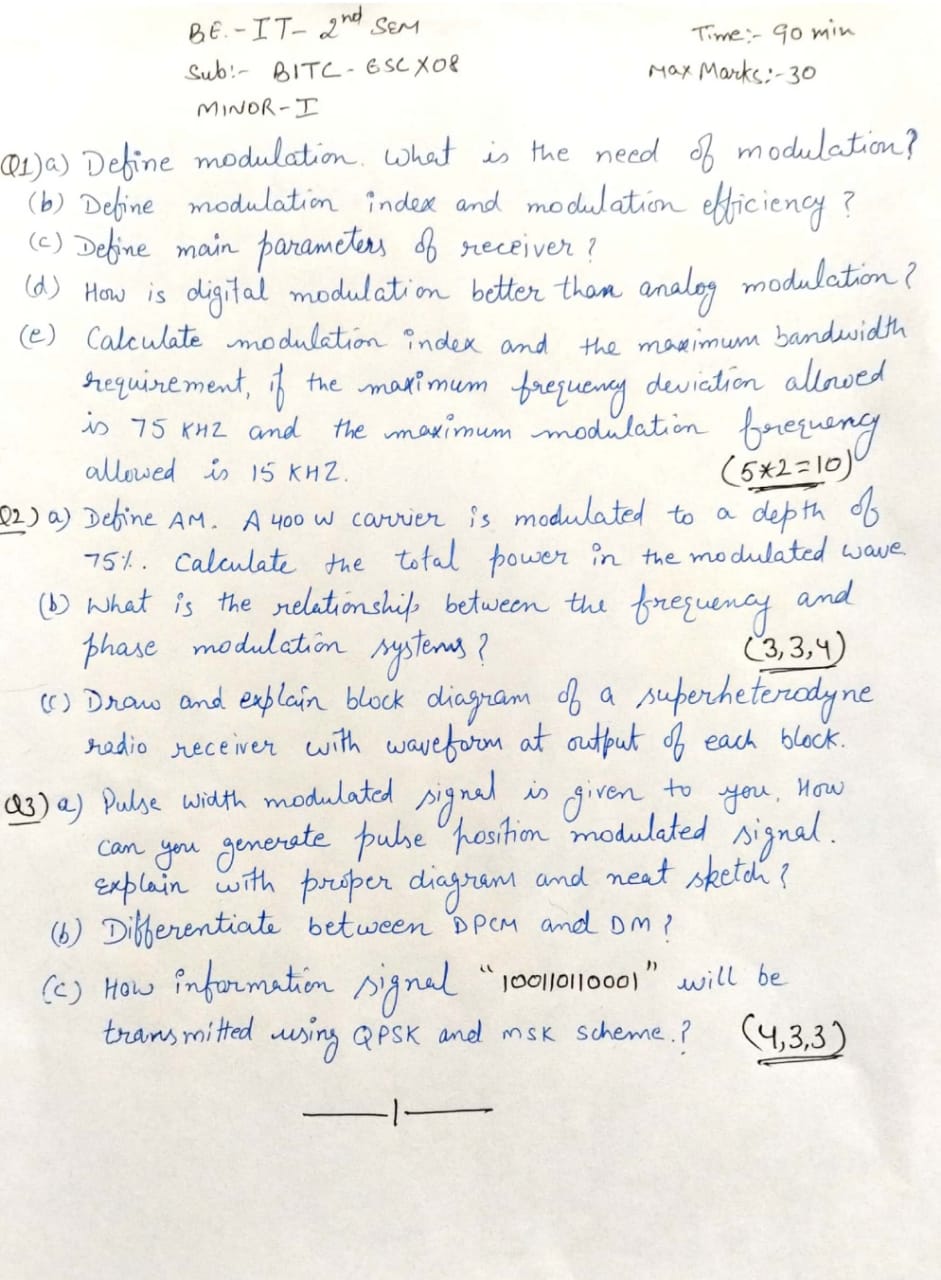 BE.-IT- 2nd SEM
Time:- 90 min
Sub:- BITC-ESCX08
Max Marks:-30
MINOR-I
Q1)a) Define modulation. What is the need of modulation?
(b) Define modulation index and modulation efficiency?
(c) Define main parameters of receiver?
(d) How is digital modulation better than analog modulation?
(e) Calculate modulation index and the maximum bandwidth
requirement, if the maximum frequency deviation allowed
is 75 KHZ and the maximum modulation frequency
allowed is 15 KHZ.
(5*2=10)
Q2) a) Define AM. A 400 W carrier is modulated to a depth of
75%. Calculate the total power in the modulated wave.
(b) What is the relationship between the frequency and
phase modulation systems?
(3,3,4)
(c) Draw and explain block diagram of a superheterodyne
radio receiver with waveform at output of each block.
Q3) a) Pulse width modulated signal is given to you. How
can you generate pulse position modulated signal.
Explain with proper diagram and neat sketch?
(b) Differentiate between DPCM and DM?
(c) How information signal "100110110001" will be
transmitted using QPSK and MSK scheme.?
(4,3,3)